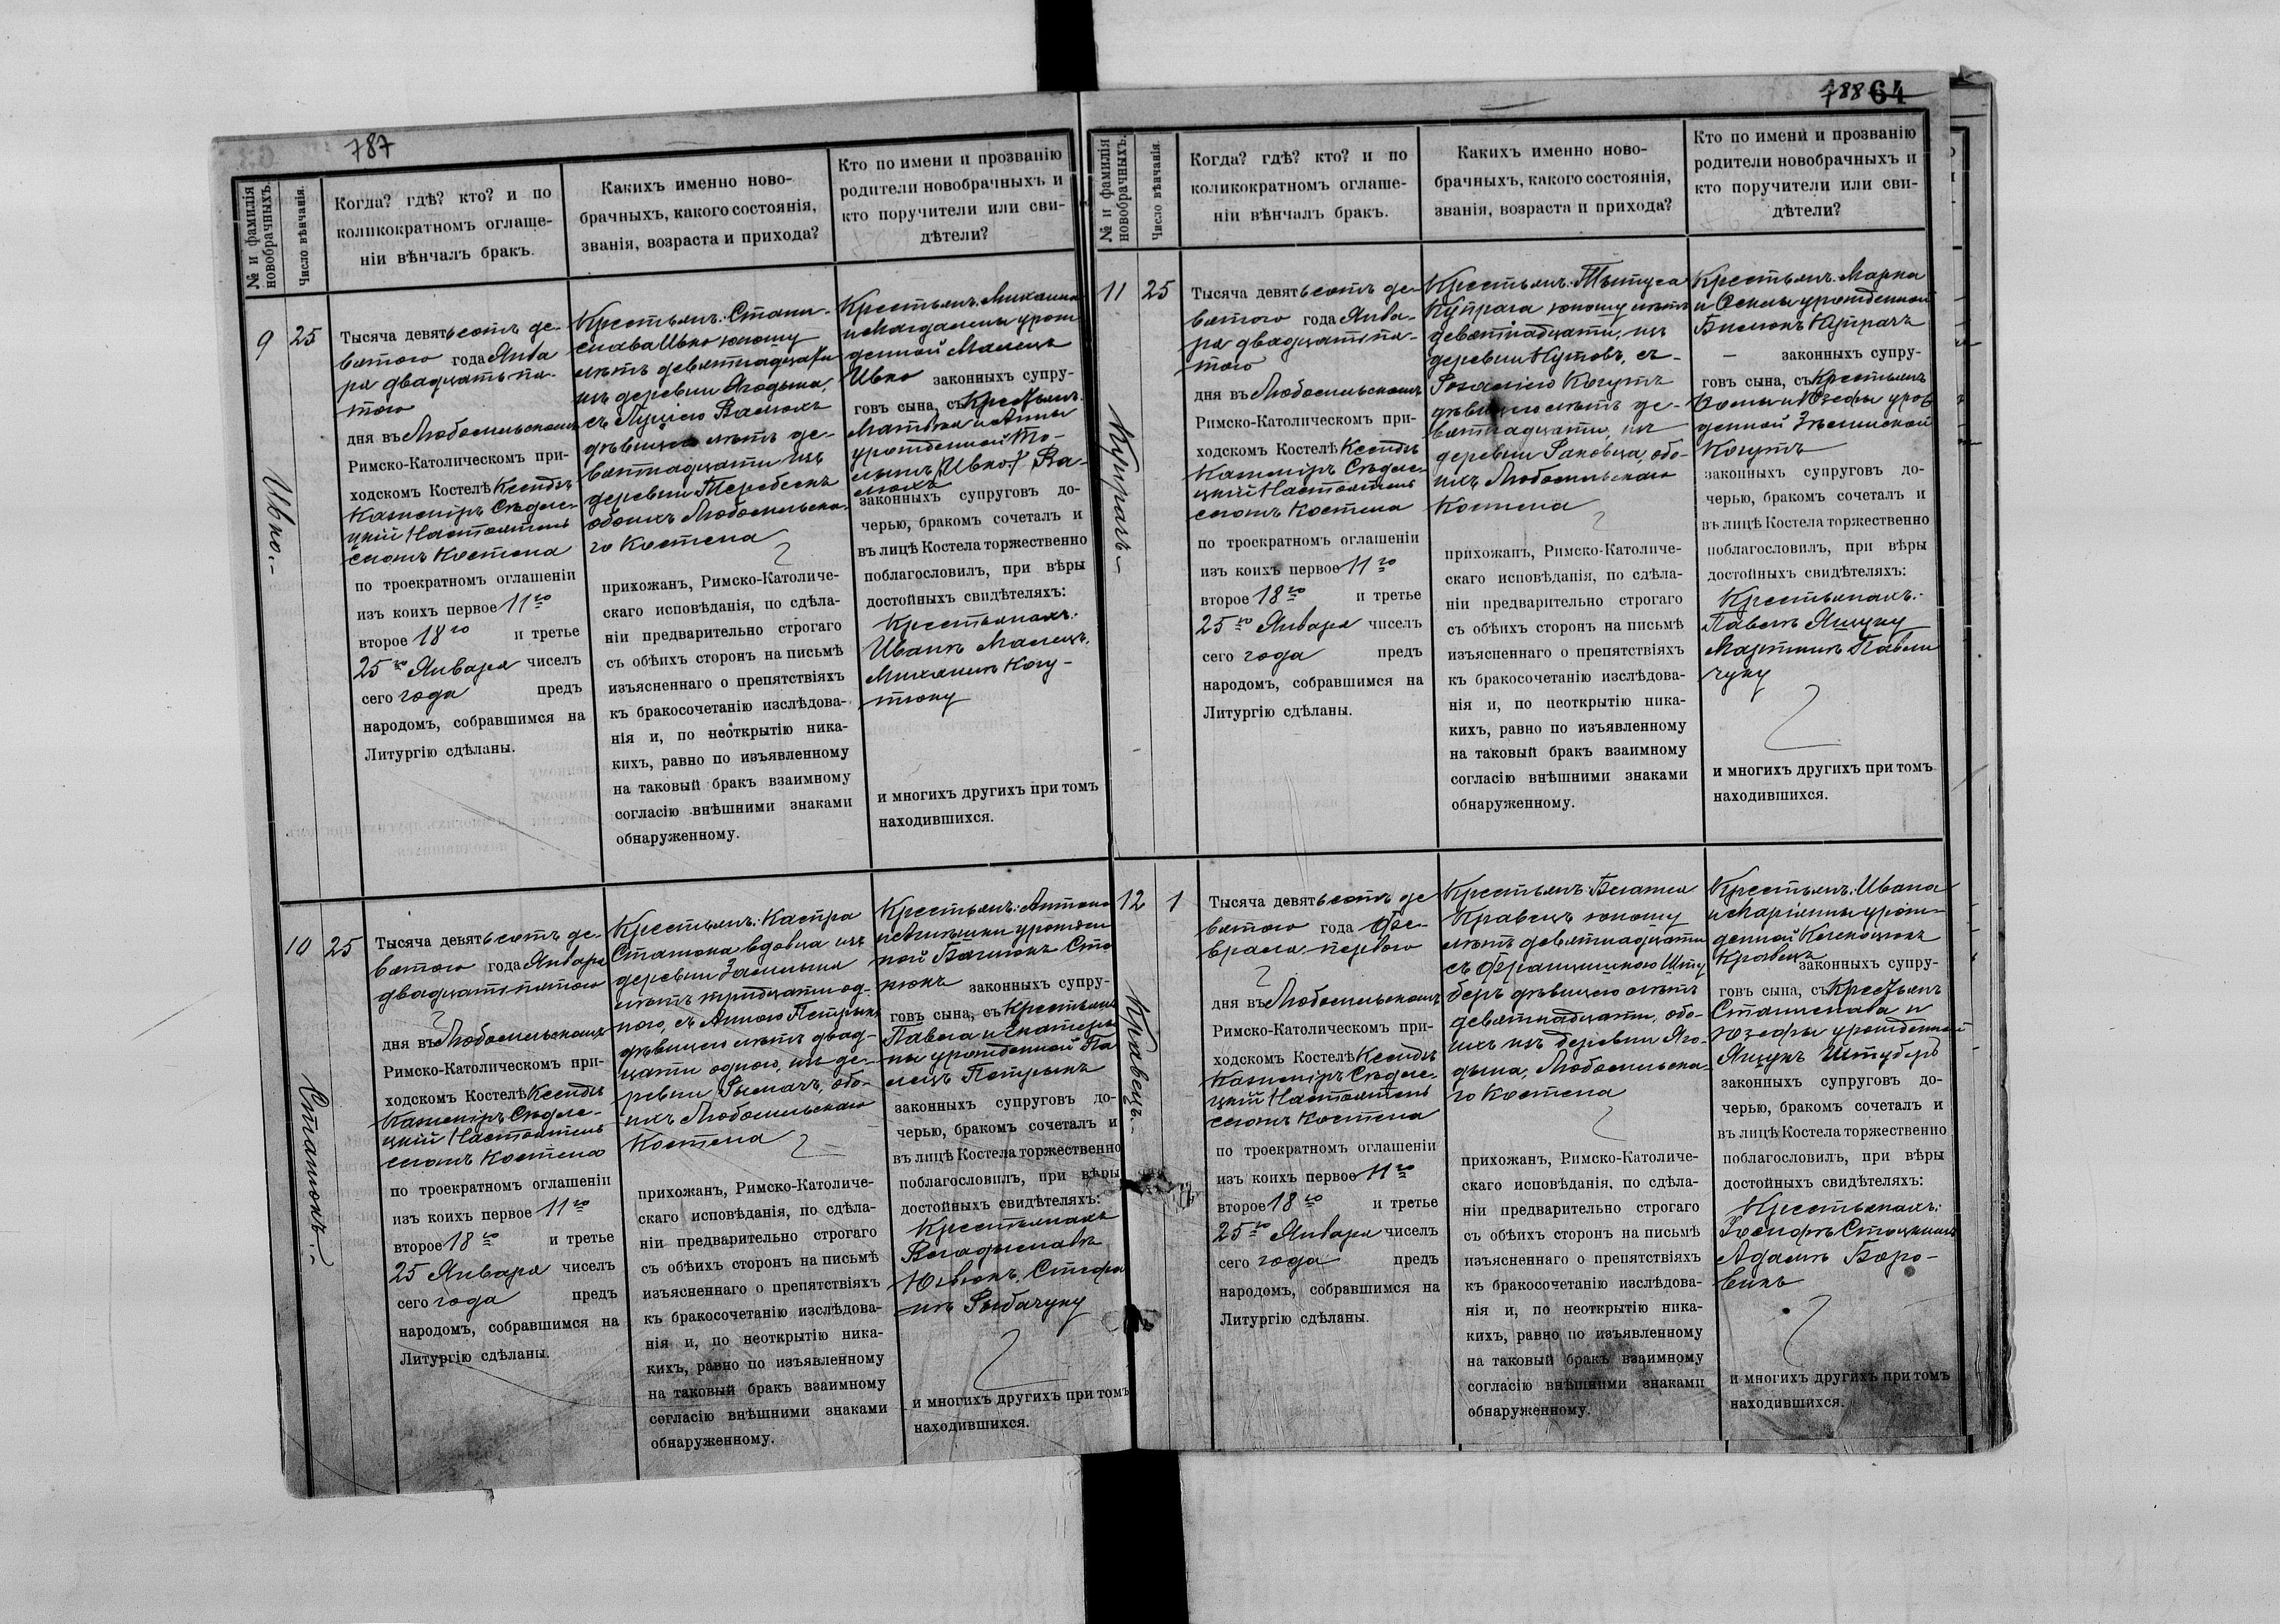 787
№ и фамилія
новобрачныхъ.
Число вѣнчанія.
Когда? гдѣ? кто? и по
коликократномъ оглаше-
ніи вѣнчалъ бракъ.
Какихъ именно ново-
брачныхъ, какого состоянія,
званія, возраста и прихода?
Кто по имени и прозванію
родители новобрачныхъ и
кто поручители или сви-
дѣтели?
9
25
Ивко.
Тысяча девятьсотъ де-
вятого года Янва
ря двадцать пя-
того
дня въ Любомльскомъ
Римско-Католическомъ при-
ходскомъ Костелѣ Ксендзъ
Казиміръ
Настоятель
Костела
по троекратномъ оглашеніи
изъ коихъ первое 11го
второе 18го и третье
25го Января чиселъ
сего года предъ
народомъ, собравшимся на
Литургію сдѣланы.
Крестьянъ: Стани-
слава Ивко юношу
лѣтъ девятнадцати
изъ деревни Ягодына,
съ Луціею Валюхъ
дѣвицею лѣтъ де-
вятнадцати изъ
деревни Теребеекъ
обоихъ Любомльска-
го Костела
прихожанъ, Римско-Католиче-
скаго исповѣданія, по сдѣла-
ніи предварительно строгаго
съ обѣихъ сторонъ на письмѣ
изъясненнаго о препятствіяхъ
къ бракосочетанію изслѣдова-
нія и, по неоткрытію ника-
кихъ, равно по изъявленному
на таковый бракъ взаимному
согласію внѣшними знаками
обнаруженному.
Крестьянъ: Михаила
и Магдалены урож
денной Малецъ
Ивко законныхъ супру-
говъ сына, съ Крестьянъ
и Анны
урожденной
Ва-
люхъ
законныхъ супруговъ до-
черью, бракомъ сочеталъ и
въ лицѣ Костела торжественно
поблагословилъ, при вѣры
достойныхъ свидѣтеляхъ:
Крестьянахъ:
Иванъ Малецъ,
Михаилъ Когу-
тюку
и многихъ другихъ при томъ
находившихся.
10
25
Сташюкъ.
Тысяча девятьсотъ де-
вятого года Января
двадцать пятого
дня въ Любомльскомъ
Римско-Католическомъ при-
ходскомъ Костелѣ Ксендзъ
Казиміръ
Настоятель
Костела
по троекратномъ оглашеніи
изъ коихъ первое 11го
второе 18го и третье
25 Января чиселъ
сего года предъ
народомъ, собравшимся на
Литургію сдѣланы.
Крестьянъ: Каспра
Сташюка вдовца изъ
деревни
лѣтъ тридцати од-
ного, съ Анною Петрыкъ
дѣвицею лѣтъ двад-
цати одного, изъ де-
ревни Рымачъ, обо-
ихъ Любомльскаго
Костела
прихожанъ, Римско-Католиче-
скаго исповѣданія, по сдѣла-
ніи предварительно строгаго
съ обѣихъ сторонъ на письмѣ
изъясненнаго о препятствіяхъ
къ бракосочетанію изслѣдова-
нія и, по неоткрытію ника-
кихъ, равно по изъявленному
на таковый бракъ взаимному
согласію внѣшними знаками
обнаруженному.
Крестьянъ: Антона
урожден
ной
законныхъ супру-
говъ сына, съ Крестьянъ
Павла и Екатери
ны урожденной Па
лецъ Петрыкъ
законныхъ супруговъ до-
черью, бракомъ сочеталъ и
въ лицѣ Костела торжественно
поблагословилъ, при вѣры
достойныхъ свидѣтеляхъ:
Крестьянахъ
Владыславъ
Стефа
нъ Рыбачуку
и многихъ другихъ при томъ
находившихся.
788 64
№ и фамилія
новобрачныхъ.
Число вѣнчанія.
Когда? гдѣ? кто? и по
коликократномъ оглаше-
ніи вѣнчалъ бракъ.
Какихъ именно ново-
брачныхъ, какого состоянія,
званія, возраста и прихода?
Кто по имени и прозванію
родители новобрачныхъ и
кто поручители или сви-
дѣтели?
11
25
Купрачъ
Тысяча девятьсотъ де-
вятого года Янва-
ря двадцать пя-
того
дня въ Любомльскомъ
Римско-Католическомъ при-
ходскомъ Костелѣ Ксендзъ
Казиміръ
Настоятель
Костела
по троекратномъ оглашеніи
изъ коихъ первое 11го
второе 18го и третье
25го Января чиселъ
сего года предъ
народомъ, собравшимся на
Литургію сдѣланы.
Крестьянъ: Тытуса
Купрача юношу лѣтъ
девятнадцати, изъ
деревни Кутовъ, съ
Розаліею Когутъ
дѣвицею лѣтъ де-
вятнадцати, изъ
деревни Раковца, обо-
ихъ Любомльскаго
Костела
прихожанъ, Римско-Католиче-
скаго исповѣданія, по сдѣла-
ніи предварительно строгаго
съ обѣихъ сторонъ на письмѣ
изъясненнаго о препятствіяхъ
къ бракосочетанію изслѣдова-
нія и, по неоткрытію ника-
кихъ, равно по изъявленному
на таковый бракъ взаимному
согласію внѣшними знаками
обнаруженному.
Крестьянъ: Марка
и урожденной
Купрачъ
законныхъ супру-
говъ сына, съ Крестьянъ
и Юзефы урож
денной
Когутъ
законныхъ супруговъ до-
черью, бракомъ сочеталъ и
въ лицѣ Костела торжественно
поблагословилъ, при вѣры
достойныхъ свидѣтеляхъ:
Крестьянахъ:
Павелъ Ящуку
Мартинъ Павлю
чуку
и многихъ другихъ при томъ
находившихся.
12
1
Кравецъ.
Тысяча девятьсотъ де
вятого года Фе-
враля перваго
дня въ Любомльскомъ
Римско-Католическомъ при-
ходскомъ Костелѣ Ксендзъ
Казиміръ
Настоятель
Костела
по троекратномъ оглашеніи
изъ коихъ первое 11го
второе 18го и третье
25го Января чиселъ
сего года предъ
народомъ, собравшимся на
Литургію сдѣланы.
Крестьянъ: Блажея
Кравецъ юношу
лѣтъ девятнадцати
съ Францишкою Шту
беръ дѣвицею лѣтъ
девятнадцати, обо-
ихъ изъ деревни Яго-
дына, Любомльска-
го Костела
прихожанъ, Римско-Католиче-
скаго исповѣданія, по сдѣла-
ніи предварительно строгаго
съ обѣихъ сторонъ на письмѣ
изъясненнаго о препятствіяхъ
къ бракосочетанію изслѣдова-
нія и, по неоткрытію ника-
кихъ, равно по изъявленному
на таковый бракъ взаимному
согласію внѣшними знаками
обнаруженному.
Крестьянъ: Ивана
и Маріянны урож-
денной
Кравецъ законныхъ супру-
говъ сына, съ Крестьянъ
Станислава и
Юзефы урожденной
Ящукъ Штуберъ
законныхъ супруговъ до-
черью, бракомъ сочеталъ и
въ лицѣ Костела торжественно
поблагословилъ, при вѣры
достойныхъ свидѣтеляхъ:
Крестьянахъ:
Іосифъ
Адамъ Боро-
викъ
и многихъ другихъ при томъ
находившихся.